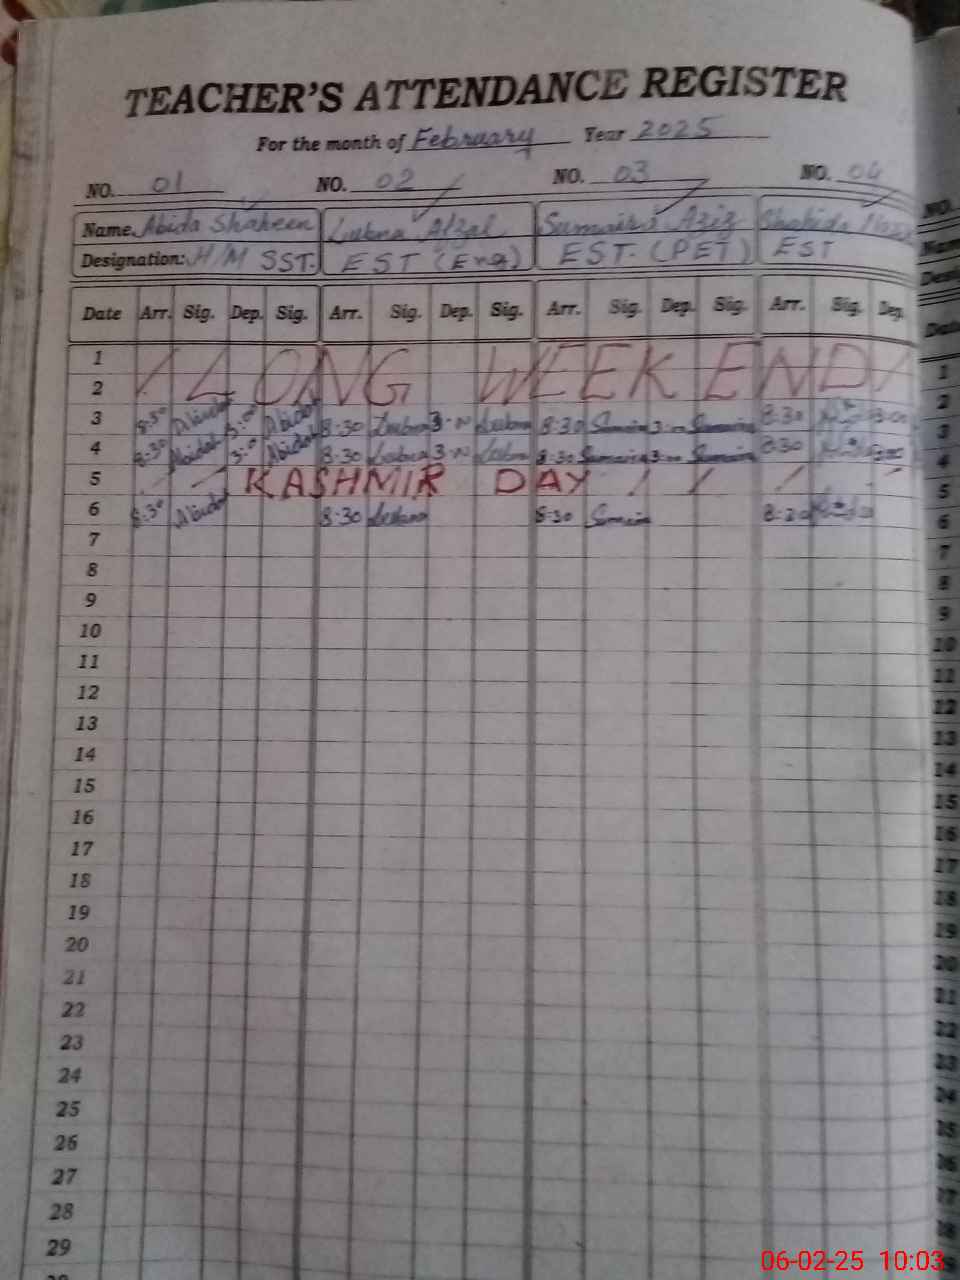 TEACHER'S ATTENDANCE REGISTER
For the month of February Year 2025
NO. 01 NO. 02 NO. 03 NO. 04
Name. Abida Shaheen Lubna Afzal Sumaira Aziz Shahida
Designation: H/M SST. EST (Eng) EST. (PET) EST
Date Arr. Sig. Dep. Sig. Arr. Sig. Dep. Sig. Arr. Sig. Dep. Sig. Arr. Sig. Dep.
1 LONG WEEK END
2
3 8:30 Abida 3:00 Abida 8:30 Lubna 3:00 Lubna 8:30 Sumaira 3:00 Sumaira 8:30 3:00
4 8:30 Abida 3:0 Abida 8:30 Lubna 3:00 Lubna 8:30 Sumaira 3:00 Sumaira 8:30
5 KASHMIR DAY
6 8:30 Abida 8:30 Lubna 8:30 Sumaira 8:30
7
8
9
10
11
12
13
14
15
16
17
18
19
20
21
22
23
24
25
26
27
28
29
06-02-25 10:03